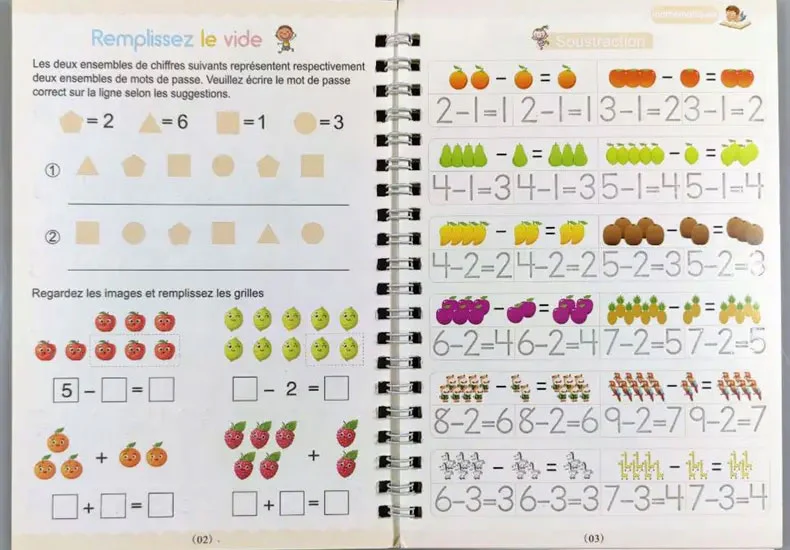 Remplissez le vide
Les deux ensembles de chiffres suivants représentent respectivement
deux ensembles de mots de passe. Veuillez écrire le mot de passe
correct sur la ligne selon les suggestions.
=2 =6 =1 =3
①
②
Regardez les images et remplissez les grilles
5 - =
- 2 =
+
+
+ =
+ =
(02)
Soustraction
- =
- =
2-1=1 2-1=1 3-1=2 3-1=2
- =
- =
4-1=3 4-1=3 5-1=4 5-1=4
- =
- =
4-2=2 4-2=2 5-2=3 5-2=3
- =
- =
6-2=4 6-2=4 7-2=5 7-2=5
- =
- =
8-2=6 8-2=6 9-2=7 9-2=7
- =
- =
6-3=3 6-3=3 7-3=4 7-3=4
(03)